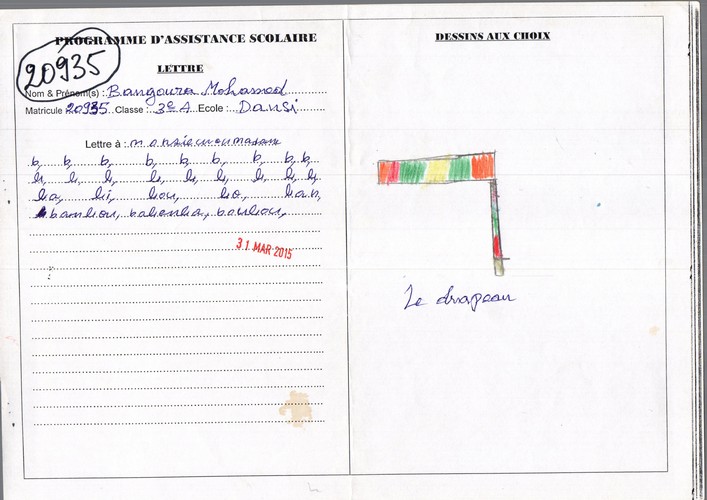 PROGRAMME D'ASSISTANCE SCOLAIRE
20935
LETTRE
Nom & Prénom(s) : Bangoura Mohamed
Matricule 20935 Classe : 3e A Ecole : Dansi
Lettre à : monsieuroumadam
b, b, b, b, b, b, b, b, b
ba, bi, bou, bo, ban,
bambou,
31 MAR 2015
DESSINS AUX CHOIX
Le drapeau